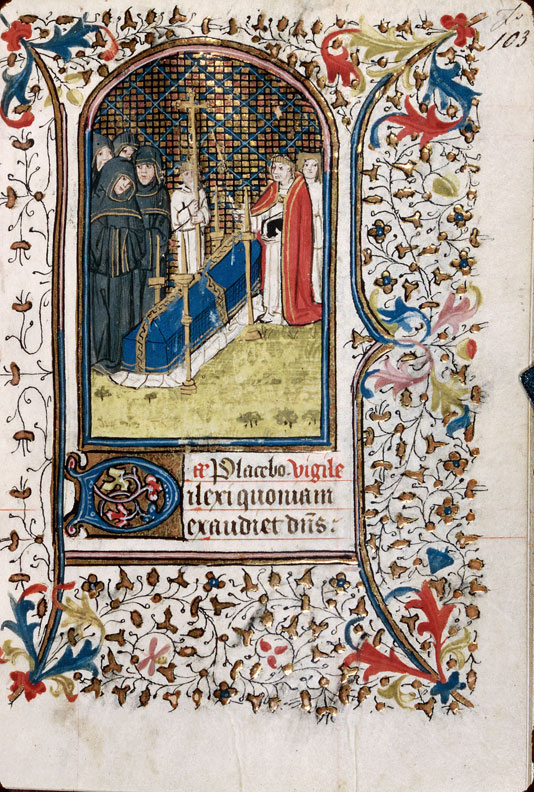 103
Placebo. Vigile
Dilexi quoniam
exaudiet dn̄s: